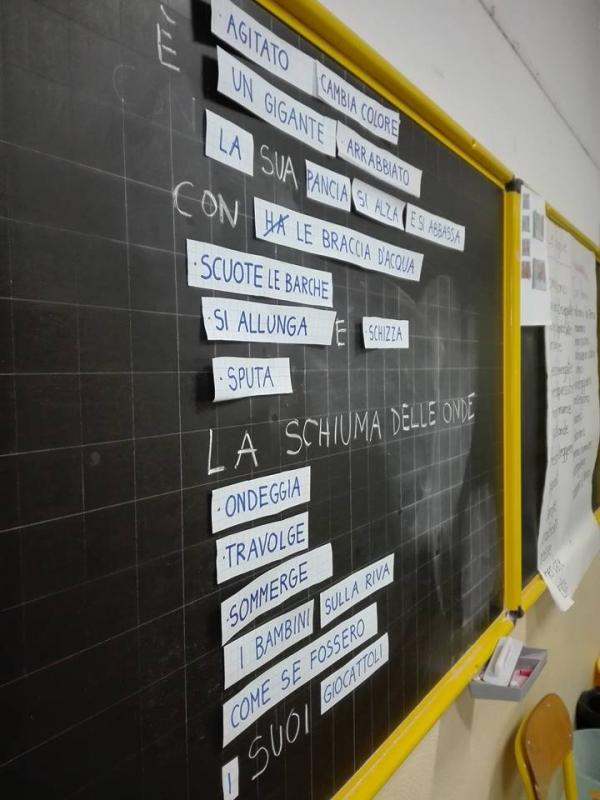 È
AGITATO CAMBIA COLORE
UN GIGANTE ARRABBIATO
LA SUA PANCIA SI ALZA E SI ABBASSA
CON HA LE BRACCIA D'ACQUA
·SCUOTE LE BARCHE
·SI ALLUNGA E ·SCHIZZA
·SPUTA
LA SCHIUMA DELLE ONDE
·ONDEGGIA
·TRAVOLGE
·SOMMERGE
I BAMBINI SULLA RIVA
COME SE FOSSERO
I SUOI GIOCATTOLI